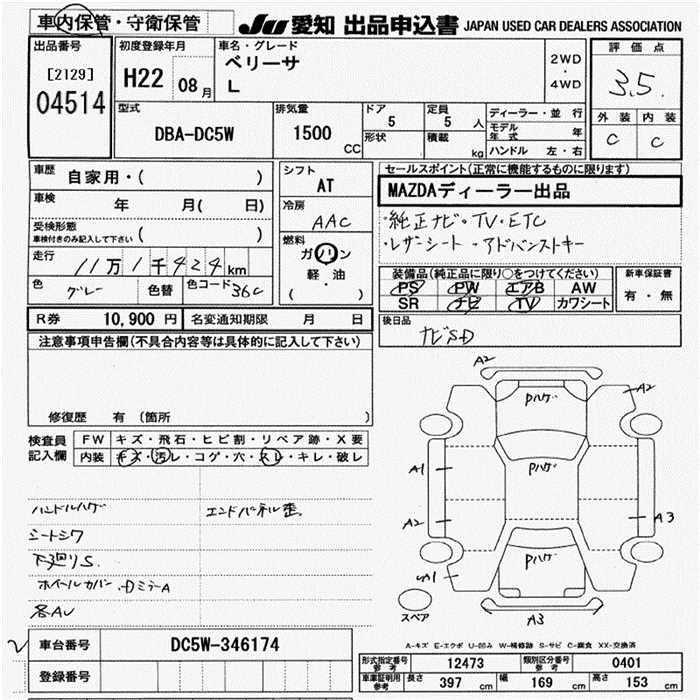 車内保管・守衛保管
JU 愛知 出品申込書 JAPAN USED CAR DEALERS ASSOCIATION
出品番号
[2129]
04514
初度登録年月
H22 08月
車名・グレード
ベリーサ
L
2WD
・
4WD
評価点
3.5.
外装 内装
C C
型式
DBA-DC5W
排気量
1500
CC
ドア
5
定員
5 人
形状
積載
kg
ディーラー・並行
モデル年式 年
ハンドル 左・右
車歴
自家用・( )
車検
年 月( 日)
受検形態
車検付きのみ記入して下さい ( )
走行
11万1千424km
色
グレー
色替
色コード 36C
シフト
AT
冷房
AAC
燃料
ガソリン
軽・油
・
( )
セールスポイント(正常に機能するものに限ります)
MAZDAディーラー出品
・純正ナビ・TV・ETC
・レザーシート・アドバンストキー
装備品(純正品に限り○をつけてください)
PS PW エアB AW
SR ナビ TV カワシート
新車保証書
有・無
R券 10,900円
名変通知期限 月 日
後日品
ナビSD
注意事項申告欄(不具合内容等は具体的に記入して下さい)
修復歴 有(箇所 )
検査員記入欄
FW キズ・飛石・ヒビ割・リペア跡・X要
内装 キズ・汚レ・コゲ・穴・スレ・キレ・破レ
ハンドルハゲ
エンドパネル歪
シートシワ
下廻りS.
ホイールカバー・DミラーA
各AU
A2
Pハゲ
A2
A1
Pハゲ
A2
A3
Pハゲ
A1
A3
スペア
A-キズ E-エクボ U-凹み W-補修跡 S-サビ C-腐食 XX-交換済
車台番号 DC5W-346174
登録番号
形式指定番号 参考 12473
類別区分番号 参考 0401
車庫証明用 参考 長さ 397 cm 幅 169 cm 高さ 153 cm